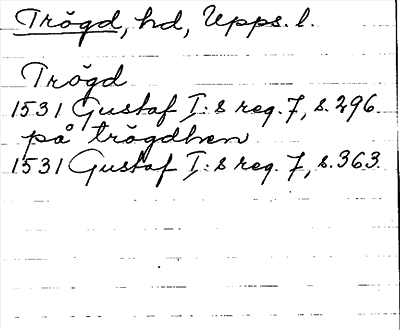 Trögd, hd, Upps. l.
Trögd
1531 Gustaf I:s reg. 7, s. 296.
på trögdhen
1531 Gustaf I:s reg. 7, s. 363.